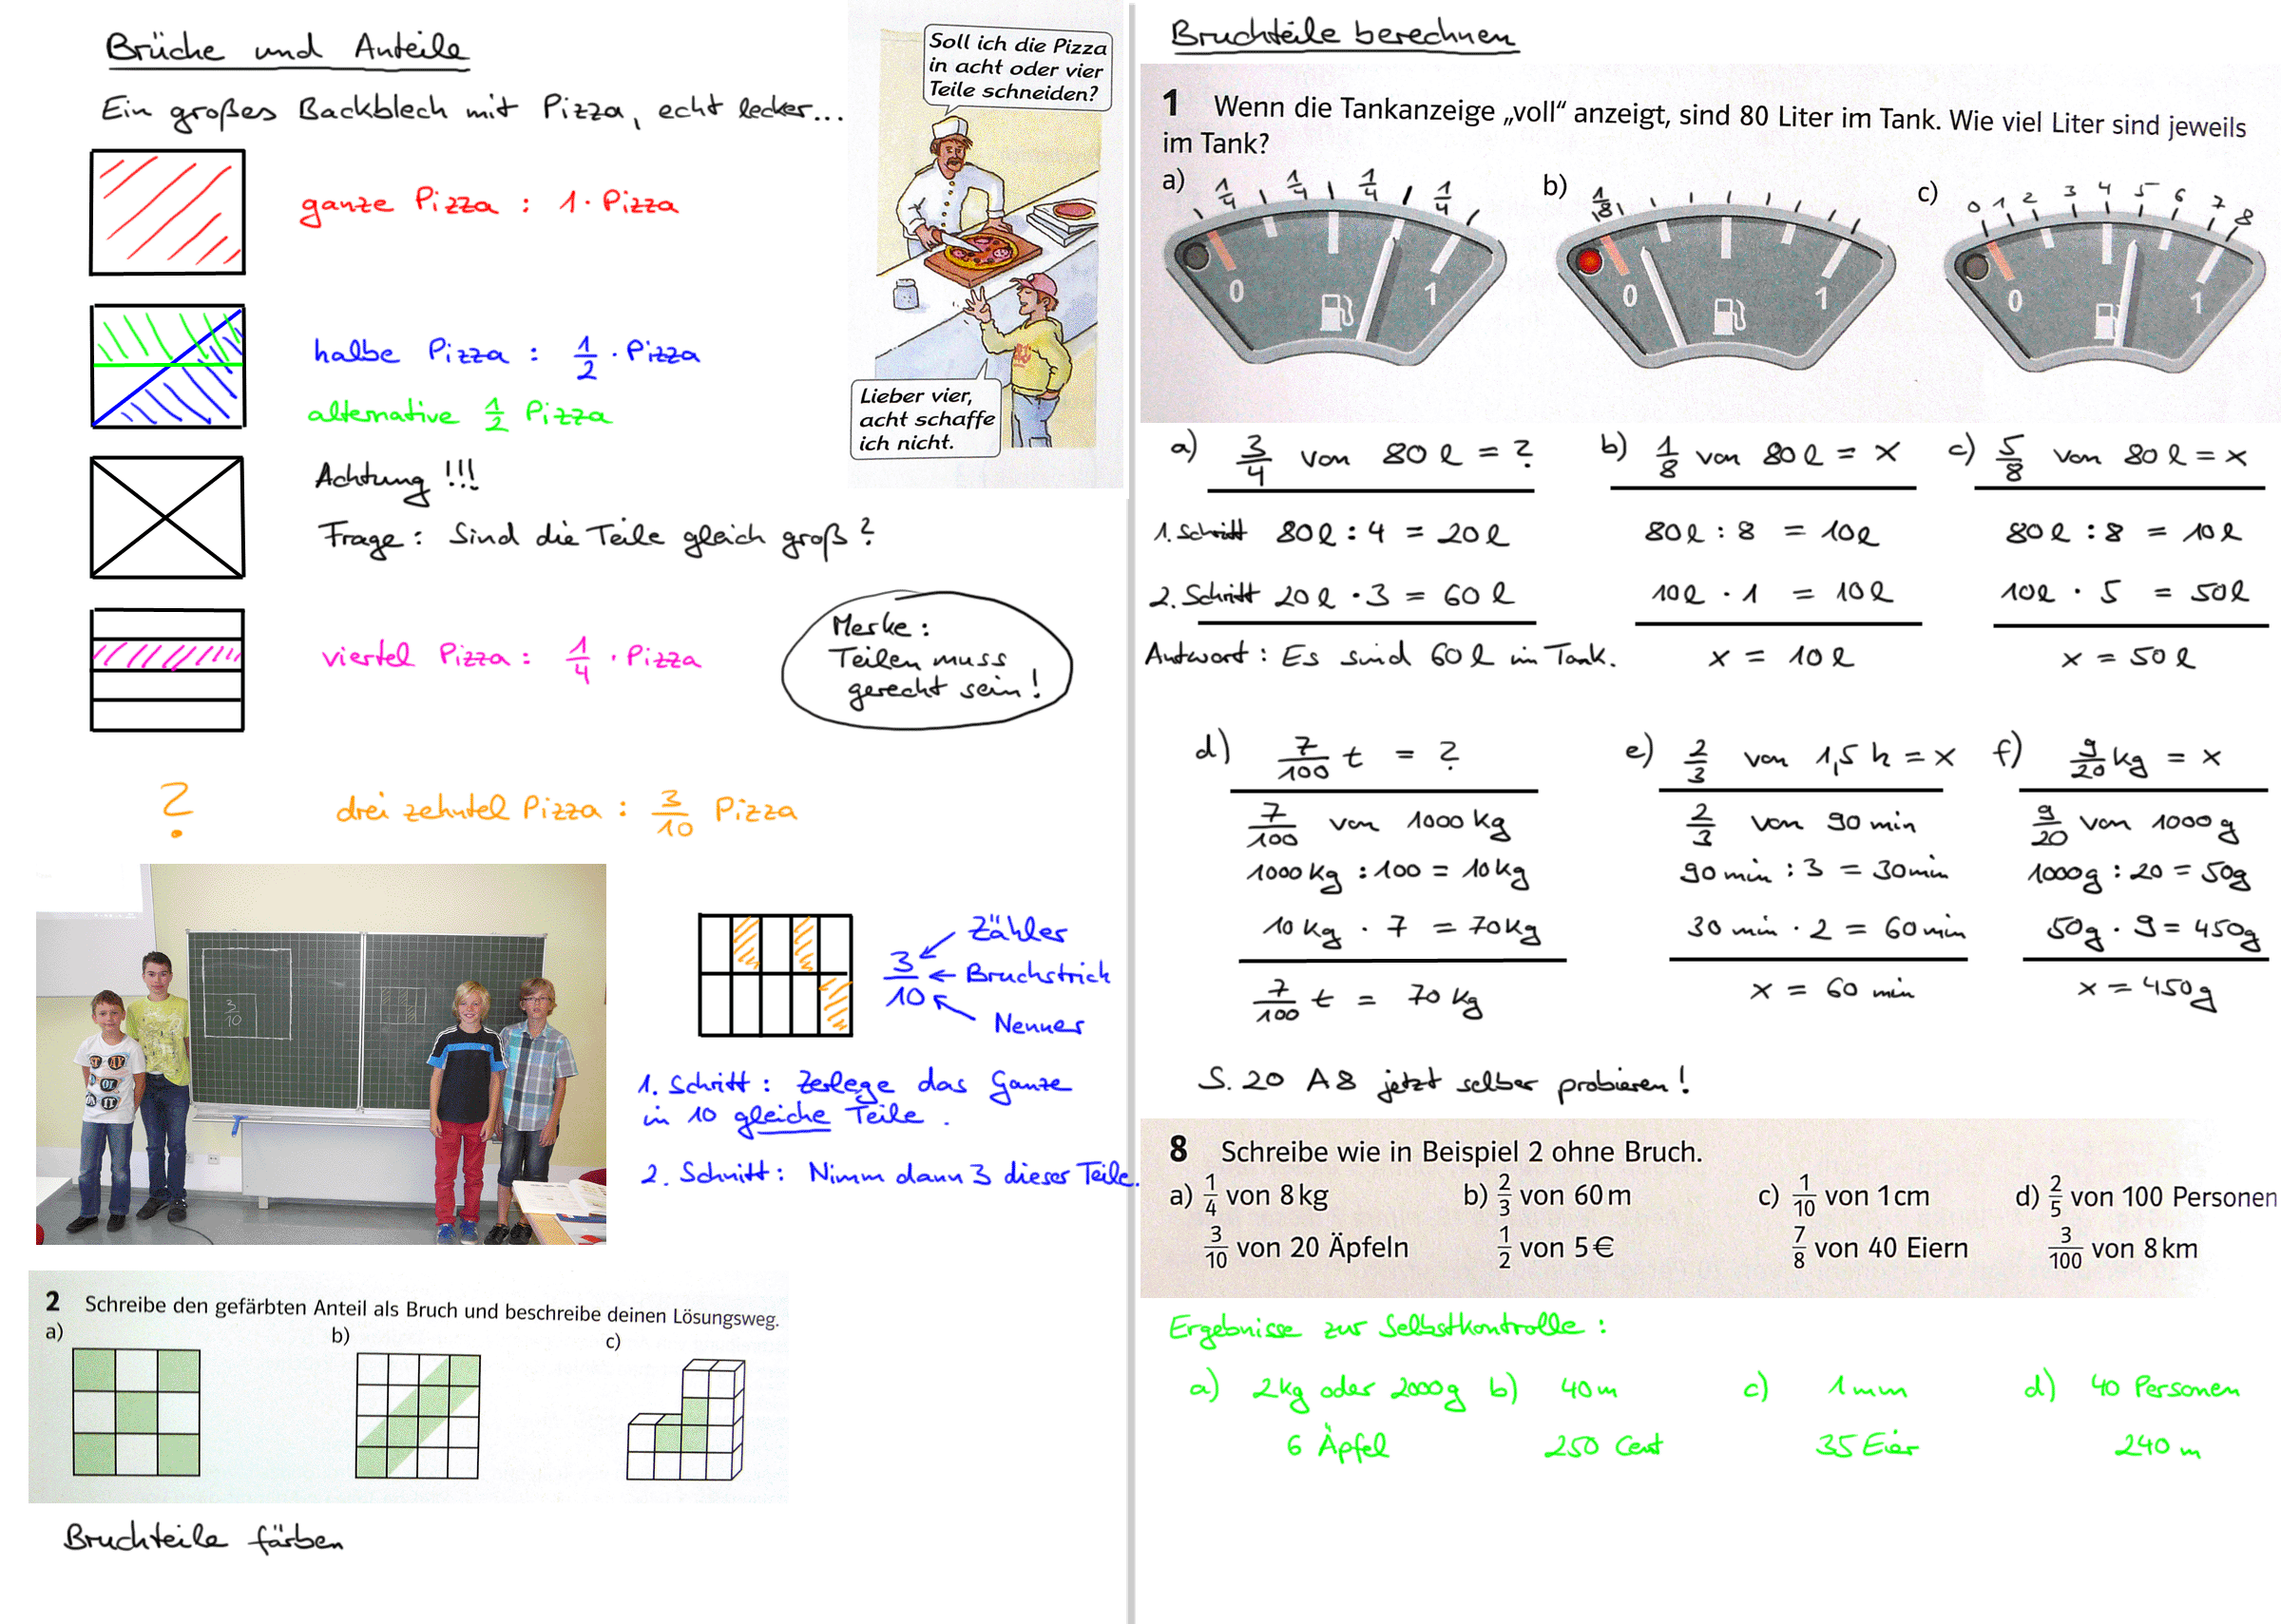 Brüche und Anteile
Ein großes Backblech mit Pizza, echt lecker...
Soll ich die Pizza
in acht oder vier
Teile schneiden?
Lieber vier,
acht schaffe
ich nicht.
ganze Pizza : 1 · Pizza
halbe Pizza : 1/2 · Pizza
alternative 1/2 Pizza
Achtung !!!
Frage : Sind die Teile gleich groß ?
viertel Pizza : 1/4 · Pizza
Merke :
Teilen muss
gerecht sein !
? drei zehntel Pizza : 3/10 Pizza
3/10
3/10
Zähler
Bruchstrich
Nenner
1. Schritt : Zerlege das Ganze
in 10 gleiche Teile .
2. Schritt : Nimm dann 3 dieser Teile.
2 Schreibe den gefärbten Anteil als Bruch und beschreibe deinen Lösungsweg.
a) b) c)
Bruchteile färben
Bruchteile berechnen
1 Wenn die Tankanzeige „voll“ anzeigt, sind 80 Liter im Tank. Wie viel Liter sind jeweils
im Tank?
a) 1/4 1/4 1/4 1/4
0 1
b) 1/8
0 1
c) 0 1 2 3 4 5 6 7 8
0 1
a) 3/4 von 80 l = ?
1. Schritt 80 l : 4 = 20 l
2. Schritt 20 l · 3 = 60 l
Antwort : Es sind 60 l im Tank.
b) 1/8 von 80 l = x
80 l : 8 = 10 l
10 l · 1 = 10 l
x = 10 l
c) 5/8 von 80 l = x
80 l : 8 = 10 l
10 l · 5 = 50 l
x = 50 l
d) 7/100 t = ?
7/100 von 1000 kg
1000 kg : 100 = 10 kg
10 kg · 7 = 70 kg
7/100 t = 70 kg
e) 2/3 von 1,5 h = x
2/3 von 90 min
90 min : 3 = 30 min
30 min · 2 = 60 min
x = 60 min
f) 9/20 kg = x
9/20 von 1000 g
1000 g : 20 = 50 g
50 g · 9 = 450 g
x = 450 g
S. 20 A 8 jetzt selber probieren !
8 Schreibe wie in Beispiel 2 ohne Bruch.
a) 1/4 von 8 kg b) 2/3 von 60 m c) 1/10 von 1 cm d) 2/5 von 100 Personen
3/10 von 20 Äpfeln 1/2 von 5 € 7/8 von 40 Eiern 3/100 von 8 km
Ergebnisse zur Selbstkontrolle :
a) 2 kg oder 2000 g b) 40 m c) 1 mm d) 40 Personen
6 Äpfel 250 Cent 35 Eier 240 m